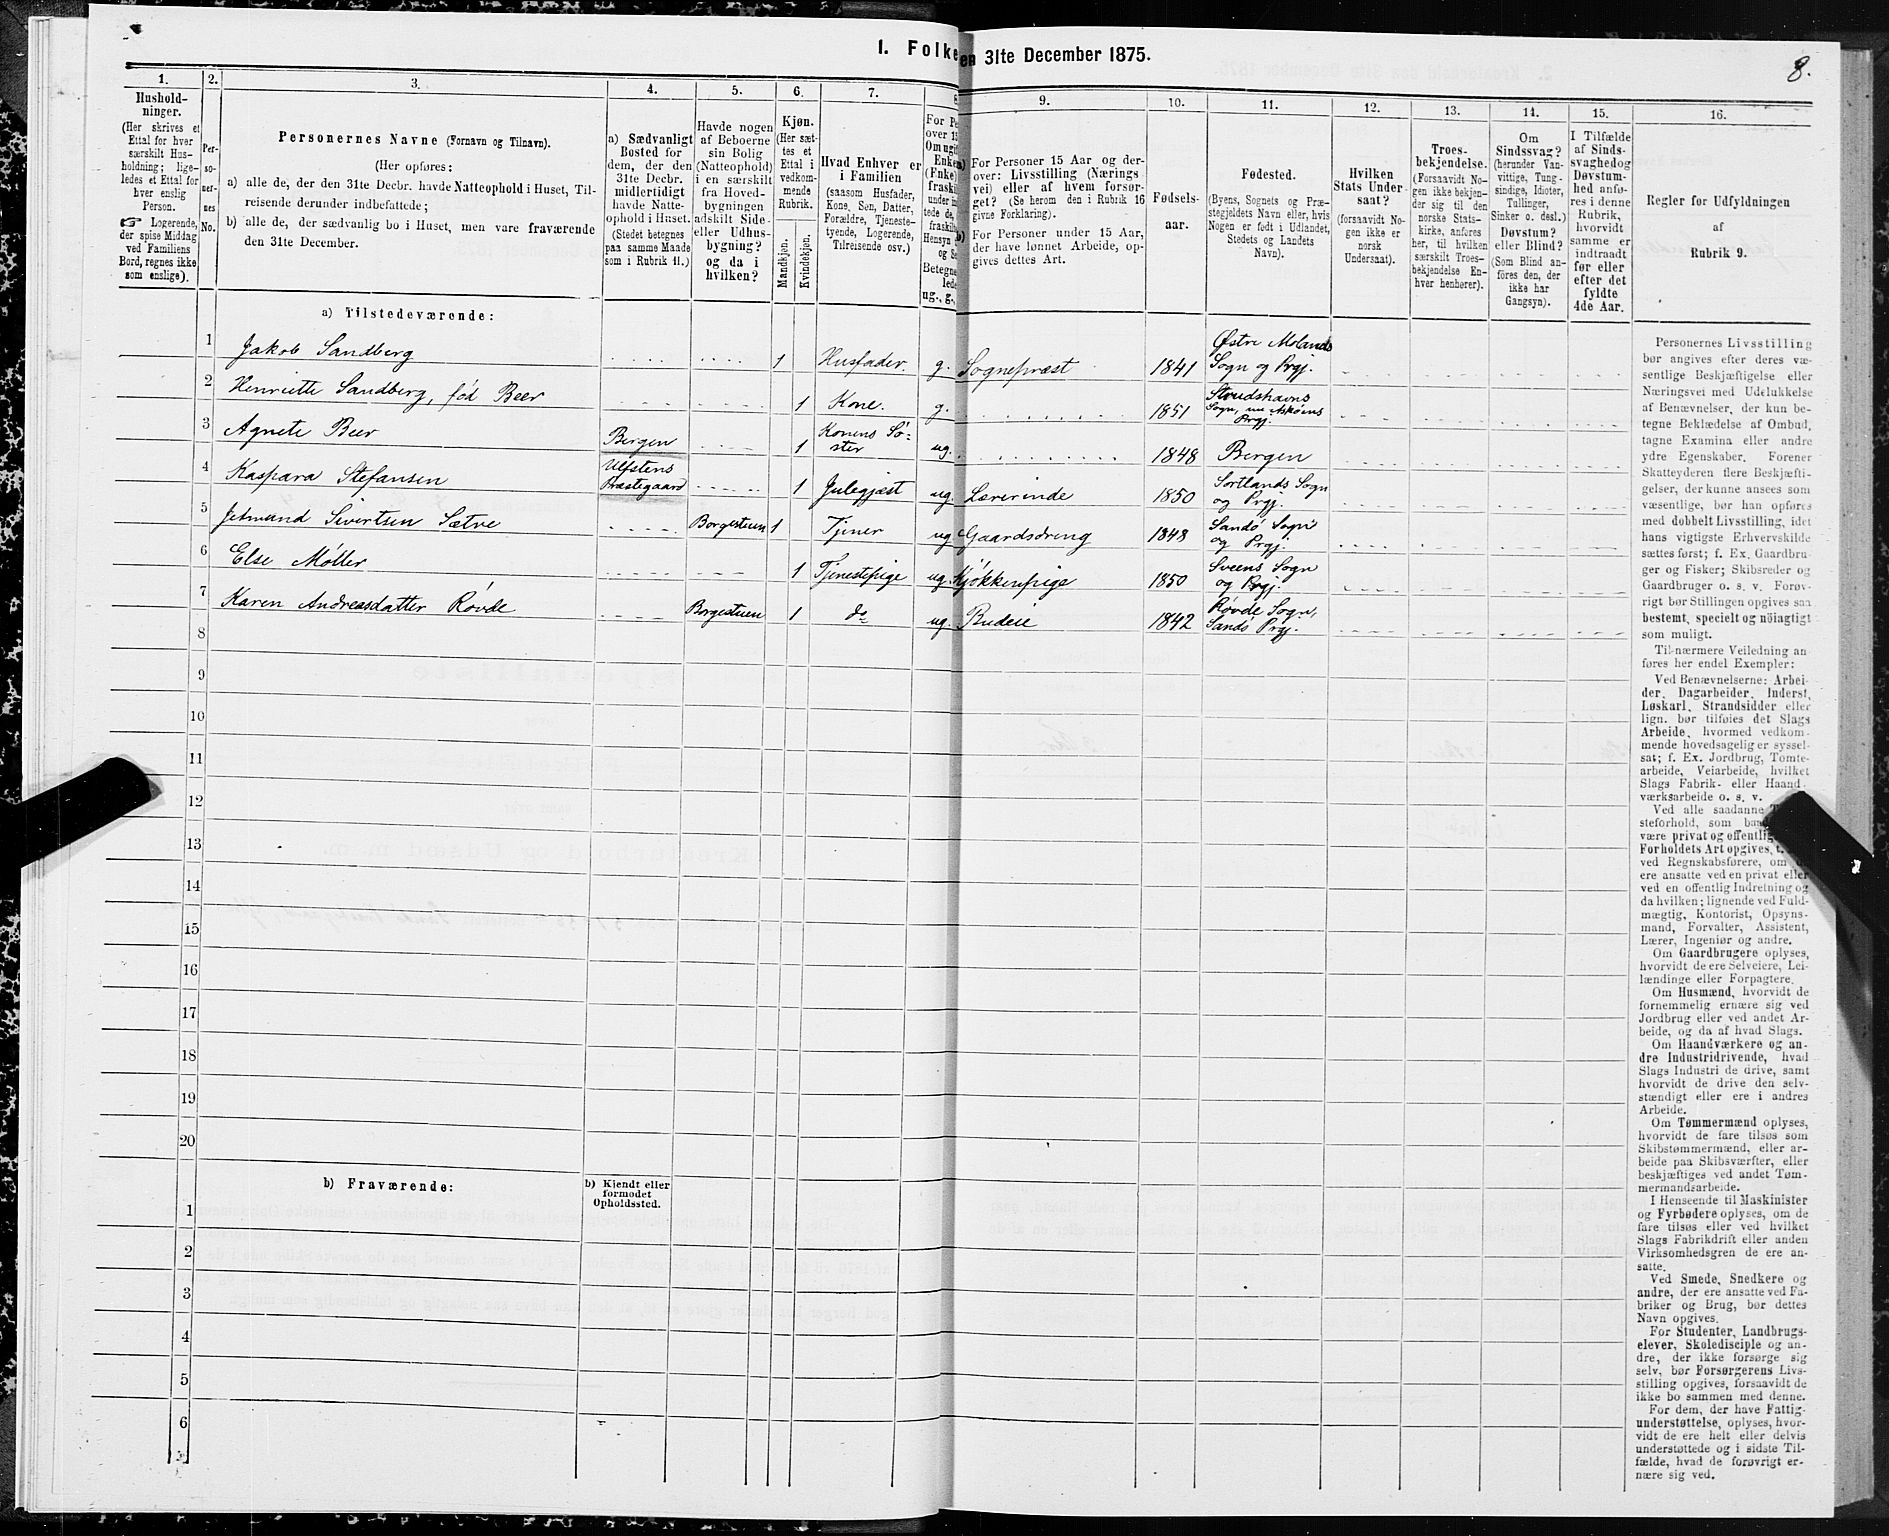 1. Folke
en 31te December 1875.
8.
1.
2.
3.
4.
5.
6.
7.
8
9.
10.
11.
12.
13.
14.
15.
16.
Hushold-
ninger.
(Her skrives et
Ettal for hver
særskilt Hus-
holdning; lige-
ledes et Ettal for
hver enslig
Person.
☞ Logerende,
der spise Middag
ved Familiens
Bord, regnes ikke
som enslige).
Per-
so-
ner-
nes
No.
Personernes Navne (Fornavn og Tilnavn).
(Her opføres:
a) alle de, der den 31te Decbr. havde Natteophold i Huset, Til-
reisende derunder indbefattede;
b) alle de, der sædvanlig bo i Huset, men vare fraværende
den 31te December.
a) Sædvanligt
Bosted for
dem, der den
31te Decbr.
midlertidigt
havde Natte-
ophold i Huset.
(Stedet betegnes
paa samme Maade
som i Rubrik 11.)
Havde nogen
af Beboerne
sin Bolig
(Natteophold)
i en særskilt
fra Hoved-
bygningen
adskilt Side-
eller Udhus-
bygning?
og da i
hvilken?
Kjøn.
(Her sæt-
tes et
Ettal i
vedkom-
mende
Rubrik.
Mandkjøn.
Kvindekjøn.
Hvad Enhver er
i Familien
(saasom Husfader,
Kone, Søn, Datter,
Forældre, Tjeneste-
tyende, Logerende,
Tilreisende osv.)
For Pe
over 1
Om ugi
Enke
(Fnke)
fraskil
under in
tede de,
fraskilt
Hensyn
og S
Betegne
lede
ug., g.,
a) For Personer 15 Aar og der-
over: Livsstilling (Nærings
vei) eller af hvem forsør-
get? (Se herom den i Rubrik 16
givne Forklaring).
b) For Personer under 15 Aar,
der have lønnet Arbeide, op-
gives dettes Art.
Fødsels-
aar.
Fødested.
(Byens, Sognets og Præ-
stegjeldets Navn eller, hvis
Nogen er født i Udlandet,
Stedets og Landets
Navn).
Hvilken
Stats Under-
saat?
(forsaavidt No-
gen ikke er
norsk
Undersaat).
Troes-
bekjendelse.
(Forsaavidt No-
gen ikke bekjen-
der sig til den
norske Stats-
kirke, anføres
her, til hvilken
særskilt Troes-
bekjendelse En-
hver henhører).
Om
Sindssvag?
(herunder Van-
vittige, Tung-
sindige, Idioter,
Tullinger,
Sinker o. desl.)
Døvstum?
eller Blind?
(Som Blind an-
føres den, der
ikke har
Gangsyn).
I Tilfælde
af Sinds-
svaghed og
Døvstum-
hed anfø-
res i denne
Rubrik,
hvorvidt
samme er
indtraadt
før eller
efter det
fyldte
4de Aar.
Regler for Udfyldningen
af
Rubrik 9.
a) Tilstedeværende:
1 Jakob Sandberg 1 Husfader. g. Sognepræst 1841 Østre Molands Sogn og Prgj.
2 Henriette Sandberg, fød Beer 1 Kone. g. 1851 Strudshavns Sogn, nu Askøens Prgj.
3 Agnete Beer Bergen 1 Konens Sø-ster ug. 1848 Bergen
4 Kaspara Stefansen Ulfstens Præstegaard 1 Julegjæst ug. Lærerinde 1850 Sortlands Sogn og Prgj.
5 Jetmund Sivertsen Sætre Borgestuen 1 Tjener ug. Gaardsdreng 1848 Sandø Sogn og Prgj.
6 Else Møller 1 Tjenestepige ug. Kjøkkenpige 1850 Sveens Sogn og Prgj.
7 Karen Andreasdatter Røvde Borgestuen 1 do ug. Budeie 1842 Røvde Sogn, Sandø Prgj.
8
9
10
11
12
13
14
15
16
17
18
19
20
b) Fraværende:
b) Kjendt eller
formodet
Opholdssted.
1
2
3
4
5
6
Personernes Livsstilling
bør angives efter deres væ-
sentlige Beskjæftigelse eller
Næringsvei med Udelukkelse
af Benævnelser, der kun be-
tegne Beklædelse af Ombud,
tagne Examina eller andre
ydre Egenskaber. Forener
Skatteyderen flere Beskjæfti-
gelser, der kunne ansees som
væsentlige, bør han opføres
med dobbelt Livsstilling, idet
hans vigtigste Erhvervskilde
sættes først; f. Ex. Gaardbru-
ger og Fisker; Skibsreder og
Gaardbruger o. s. v. Forøv-
rigt bør Stillingen opgives saa
bestemt, specielt og nöiagtigt
som muligt.
Til nærmere Veiledning an-
føres her endel Exempler:
Ved Benævnelserne: Arbei-
der, Dagarbeider, Inderst,
Løskarl, Strandsidder eller
lign. bør tilføies det Slags
Arbeide, hvormed vedkom-
mende hovedsagelig er syssel-
sat; f. Ex. Jordbrug, Tomte-
arbeide, Veiarbeide, hvilket
Slags Fabrik- eller Haand-
værksarbeide o. s. v.
Ved alle saadanne T
steforhold, som
være privat og offentlig
Forholdets Art opgives,
ved Regnskabsførere, om
ere ansatte ved en privat eller
ved en offentlig Indretning og
da hvilken; lignende ved Fuld-
mægtig, Kontorist, Opsyns-
mand, Forvalter, Assistent,
Lærer, Ingeniør og andre.
Om Gaardbrugere oplyses,
hvorvidt de ere Selveiere, Lei-
lændinge eller Forpagtere.
Om Husmænd, hvorvidt de
fornemmelig ernære sig ved
Jordbrug eller ved andet Ar-
beide, og da af hvad Slags.
Om Haandværkere og an-
dre Industridrivende, hvad
Slags Industri de drive, samt
hvorvidt de drive den selv-
stændigt eller ere i andres
Arbeide.
Om Tømmermænd oplyses,
hvorvidt de fare tilsøs som
Skibstømmermænd, eller ar-
beide paa Skibsværfter, eller
beskjæftiges ved andet Tøm-
mermandsarbeide.
I Henseende til Maskinister
og Fyrbødere oplyses, om de
fare tilsøs eller ved hvilket
Slags Fabrikdrift eller anden
Virksomhedsgren de ere an-
satte.
Ved Smede, Snedkere og
andre, der ere ansatte ved Fa-
briker og Brug, bør dettes
Navn opgives.
For Studenter, Landbrugs-
elever, Skoledisciple og an-
dre, der ikke forsørge sig
selv, bør Forsørgerens Livs-
stilling opgives, forsaavidt de
ikke bo sammen med denne.
For dem, der have Fattig-
understøttelse, oplyses, hvor-
vidt de ere helt eller delvis
understøttede og i sidste Til-
fælde, hvad de forøvrigt er-
nære sig ved.